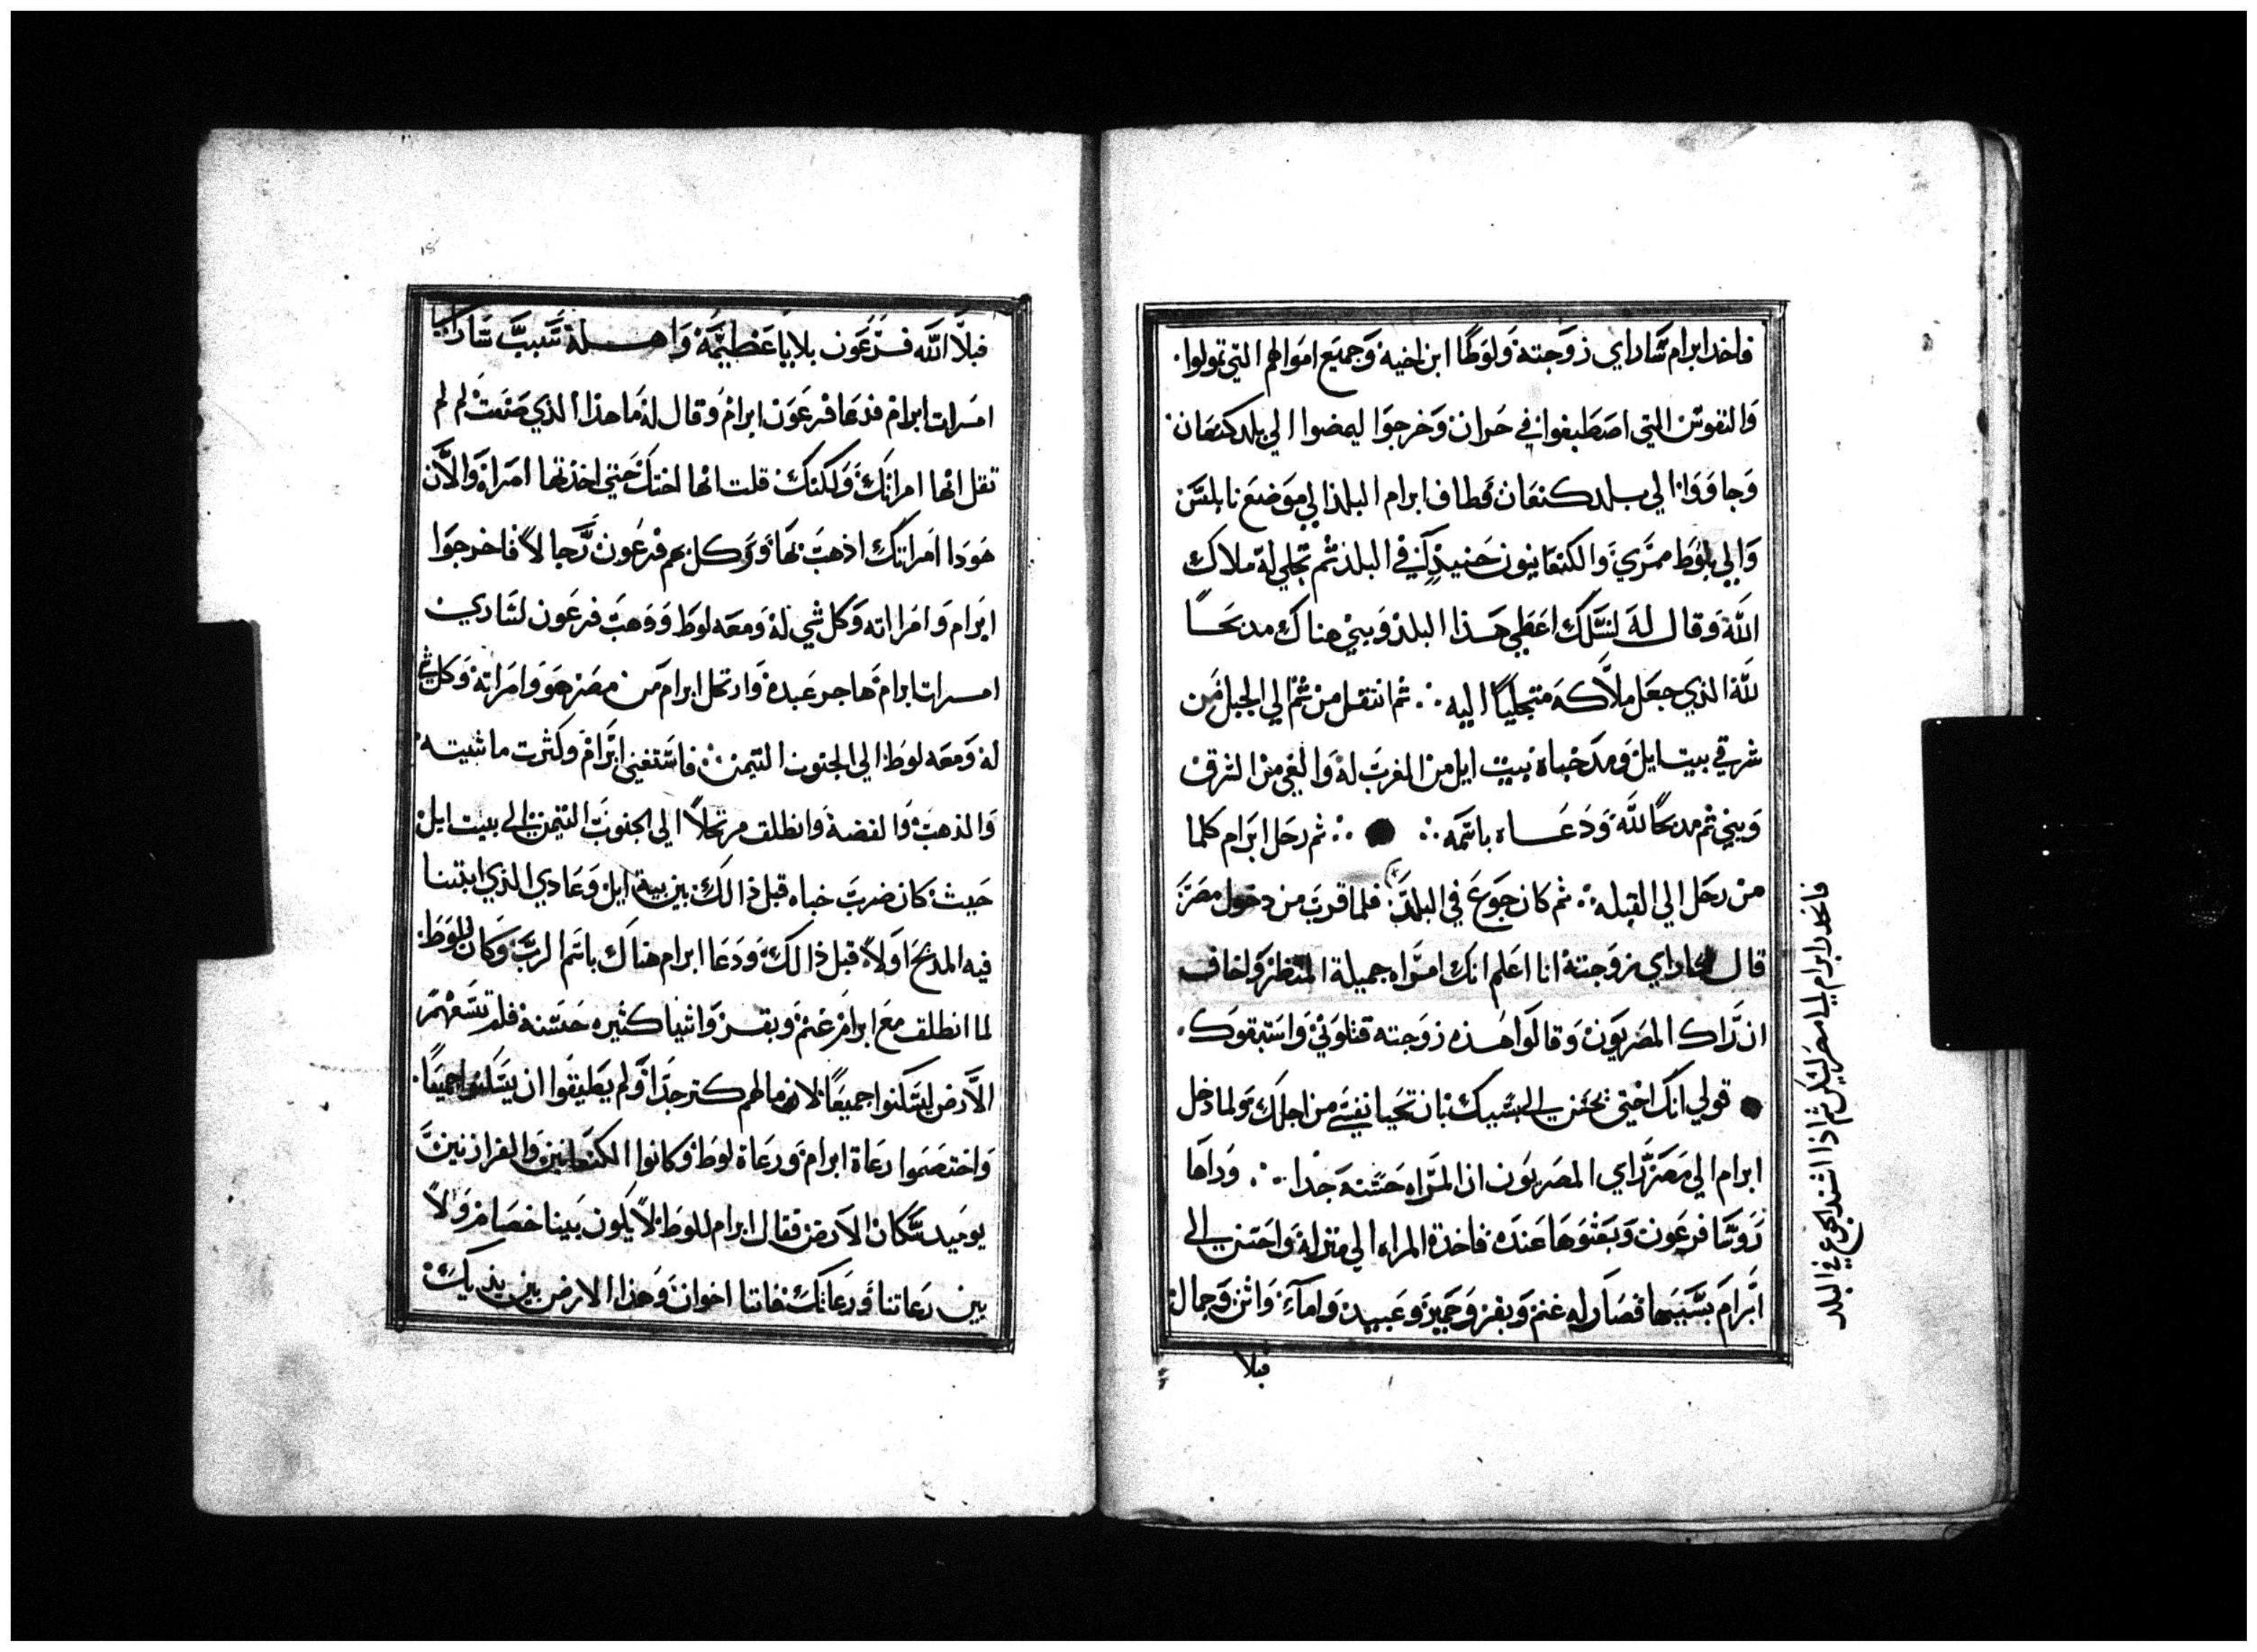 فاخد ابرام ساراي زوجته ولوطا ابن اخيه وجميع اموالهم التي تمولوا
والنفوس التي اصطبغوا في حران وخرجوا ليمضوا الي بلد كنعان
وجاووا الي بلد كنعان فطاف ابرام البلد الي موضع نابلس
والي بلوط ممري والكنعانيون حنيذ في البلد ثم تجلي له ملاك
الله وقال له لنسلك اعطي هذا البلد وبني هناك مدبحا
لله الذي جعل ملاكه متجليا اليه ثم انتقل من ثم الي الجبل من
شرقي بيت ايل ومد خباه بيت ايل من المغرب له والغي من الشرق
وبني ثم مدبحا لله ودعاه باسمه ثم رحل ابرام كلما
من رحل الي القبله ثم كان جوع في البلد فلما قرب من دخول مصر
قال لساراي زوجته انا اعلم انك امراه جميلة المنظر واخاف
ان راك المصريون وقالوا هذه زوجته قتلوني واستبقوك
قولي انك اختي يحسن الي بسببك بان تحيا نفسي من اجلك ولما دخل
ابرام الي مصر راي المصريون ان المراه حسنه جدا وراها
روسا فرعون وبعثوها عنده فاخدة المراه الي منزله واحسن الي
ابرام بسببها فصار له غنم وبقر وحمير وعبيد وامآء واتن وجمال
فبلا
فاتحدر ابرام الي مصر ليسكن ثم اذا اشتد الجوع في البلد
فبلا الله فرعون بلايا عظيمة واهله بسبب ساراي
امرات ابرام فدعا فرعون ابرام وقال له ما هذا الذي صنعت لم لم
تقل انها امراتك ولكنك قلت انها اختك حتي اخذتها امراة والان
هودا امراتك اذهب بها ووكل بهم فرعون رجالا فاخرجوا
ابرام وامراته وكل شي له ومعه لوط ووهب فرعون لساري
امرات ابرام هاجر عبده وارتحل ابرام من مصر هو وامراته وكل شي
له ومعه لوط الي الجنوب التيمن فاستغني ابرام وكثرت ماشيته
والذهب والفضة وانطلق مرتحلا الي الجنوب التيمن الي بيت ايل
حيث كان ضرب خباه قبل ذالك بين بية ايل وعادي الذي ابتنا
فيه المدبح اولا قبل ذالك ودعا ابرام هناك باسم الرب وكان للوط
لما انطلق مع ابرام غنم وبقر واشيا كثيره حسنة فلم تسعهم
الارض ليسكنوا جميعا لان مالهم كتر جدا ولم يطيقوا ان يسكنوا جميعا
واختصموا رعاة ابرام ورعاة لوط وكانوا الكنعانين والفرازنين
يوميد سكان الارض فقال ابرام للوط لا يكون بيننا خصام ولا
بين رعاتنا ورعاتك فاننا اخوان وهذا الارض بين يديك